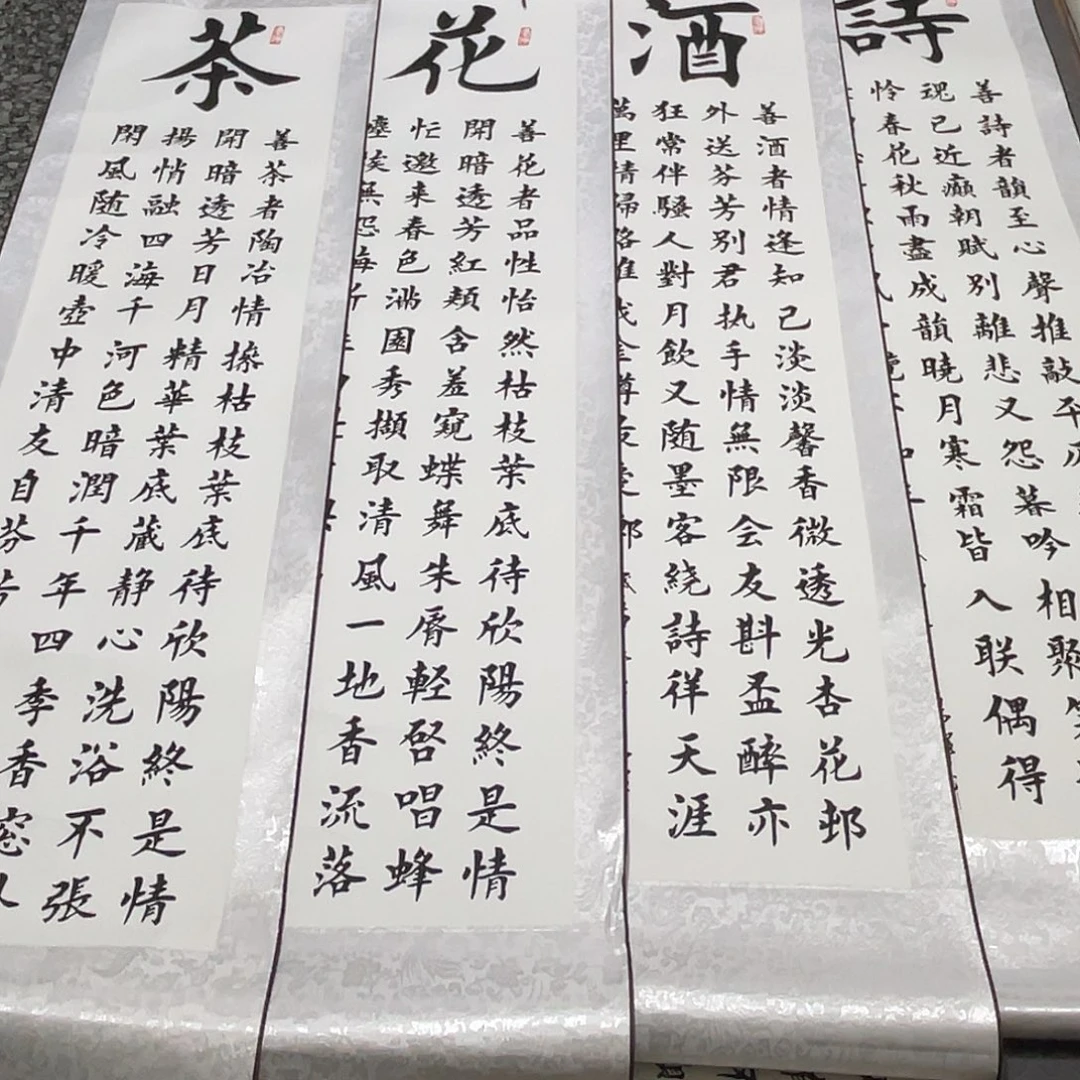 詩
善詩者韻至心聲推敲平仄
魂已近癲朝賦別離悲又怨暮吟相聚笑
怜春花秋雨盡成韻曉月寒霜皆入联偶得
酒
善酒者情逢知己淡淡馨香微透光杏花邨
外送芬芳別君执手情無限会友斟盃醉亦
狂常伴騷人對月飲又随墨客繞詩徉天涯
萬里情歸路
花
善花者品性怡然枯枝葉底待欣陽終是情
開暗透芳紅頰含羞窺蝶舞朱脣輕啓唱蜂
忙邀来春色滿園秀擷取清風一地香流落
塵埃無怨悔
茶
善茶者陶冶情操枯枝葉底待欣陽終是情
開暗透芳日月精華葉底蔵静心洗浴不張
揚悄融四海千河色暗潤千年四季香窓人
閑風随冷暖壺中清友自芬芳